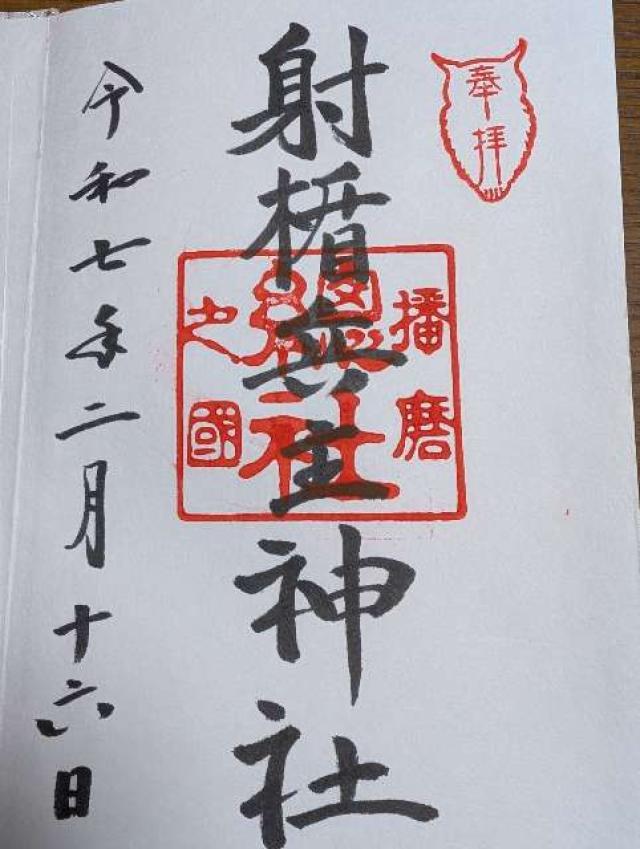 奉拝
射楯兵主神社
播磨
總社
之國
令和七年二月十六日